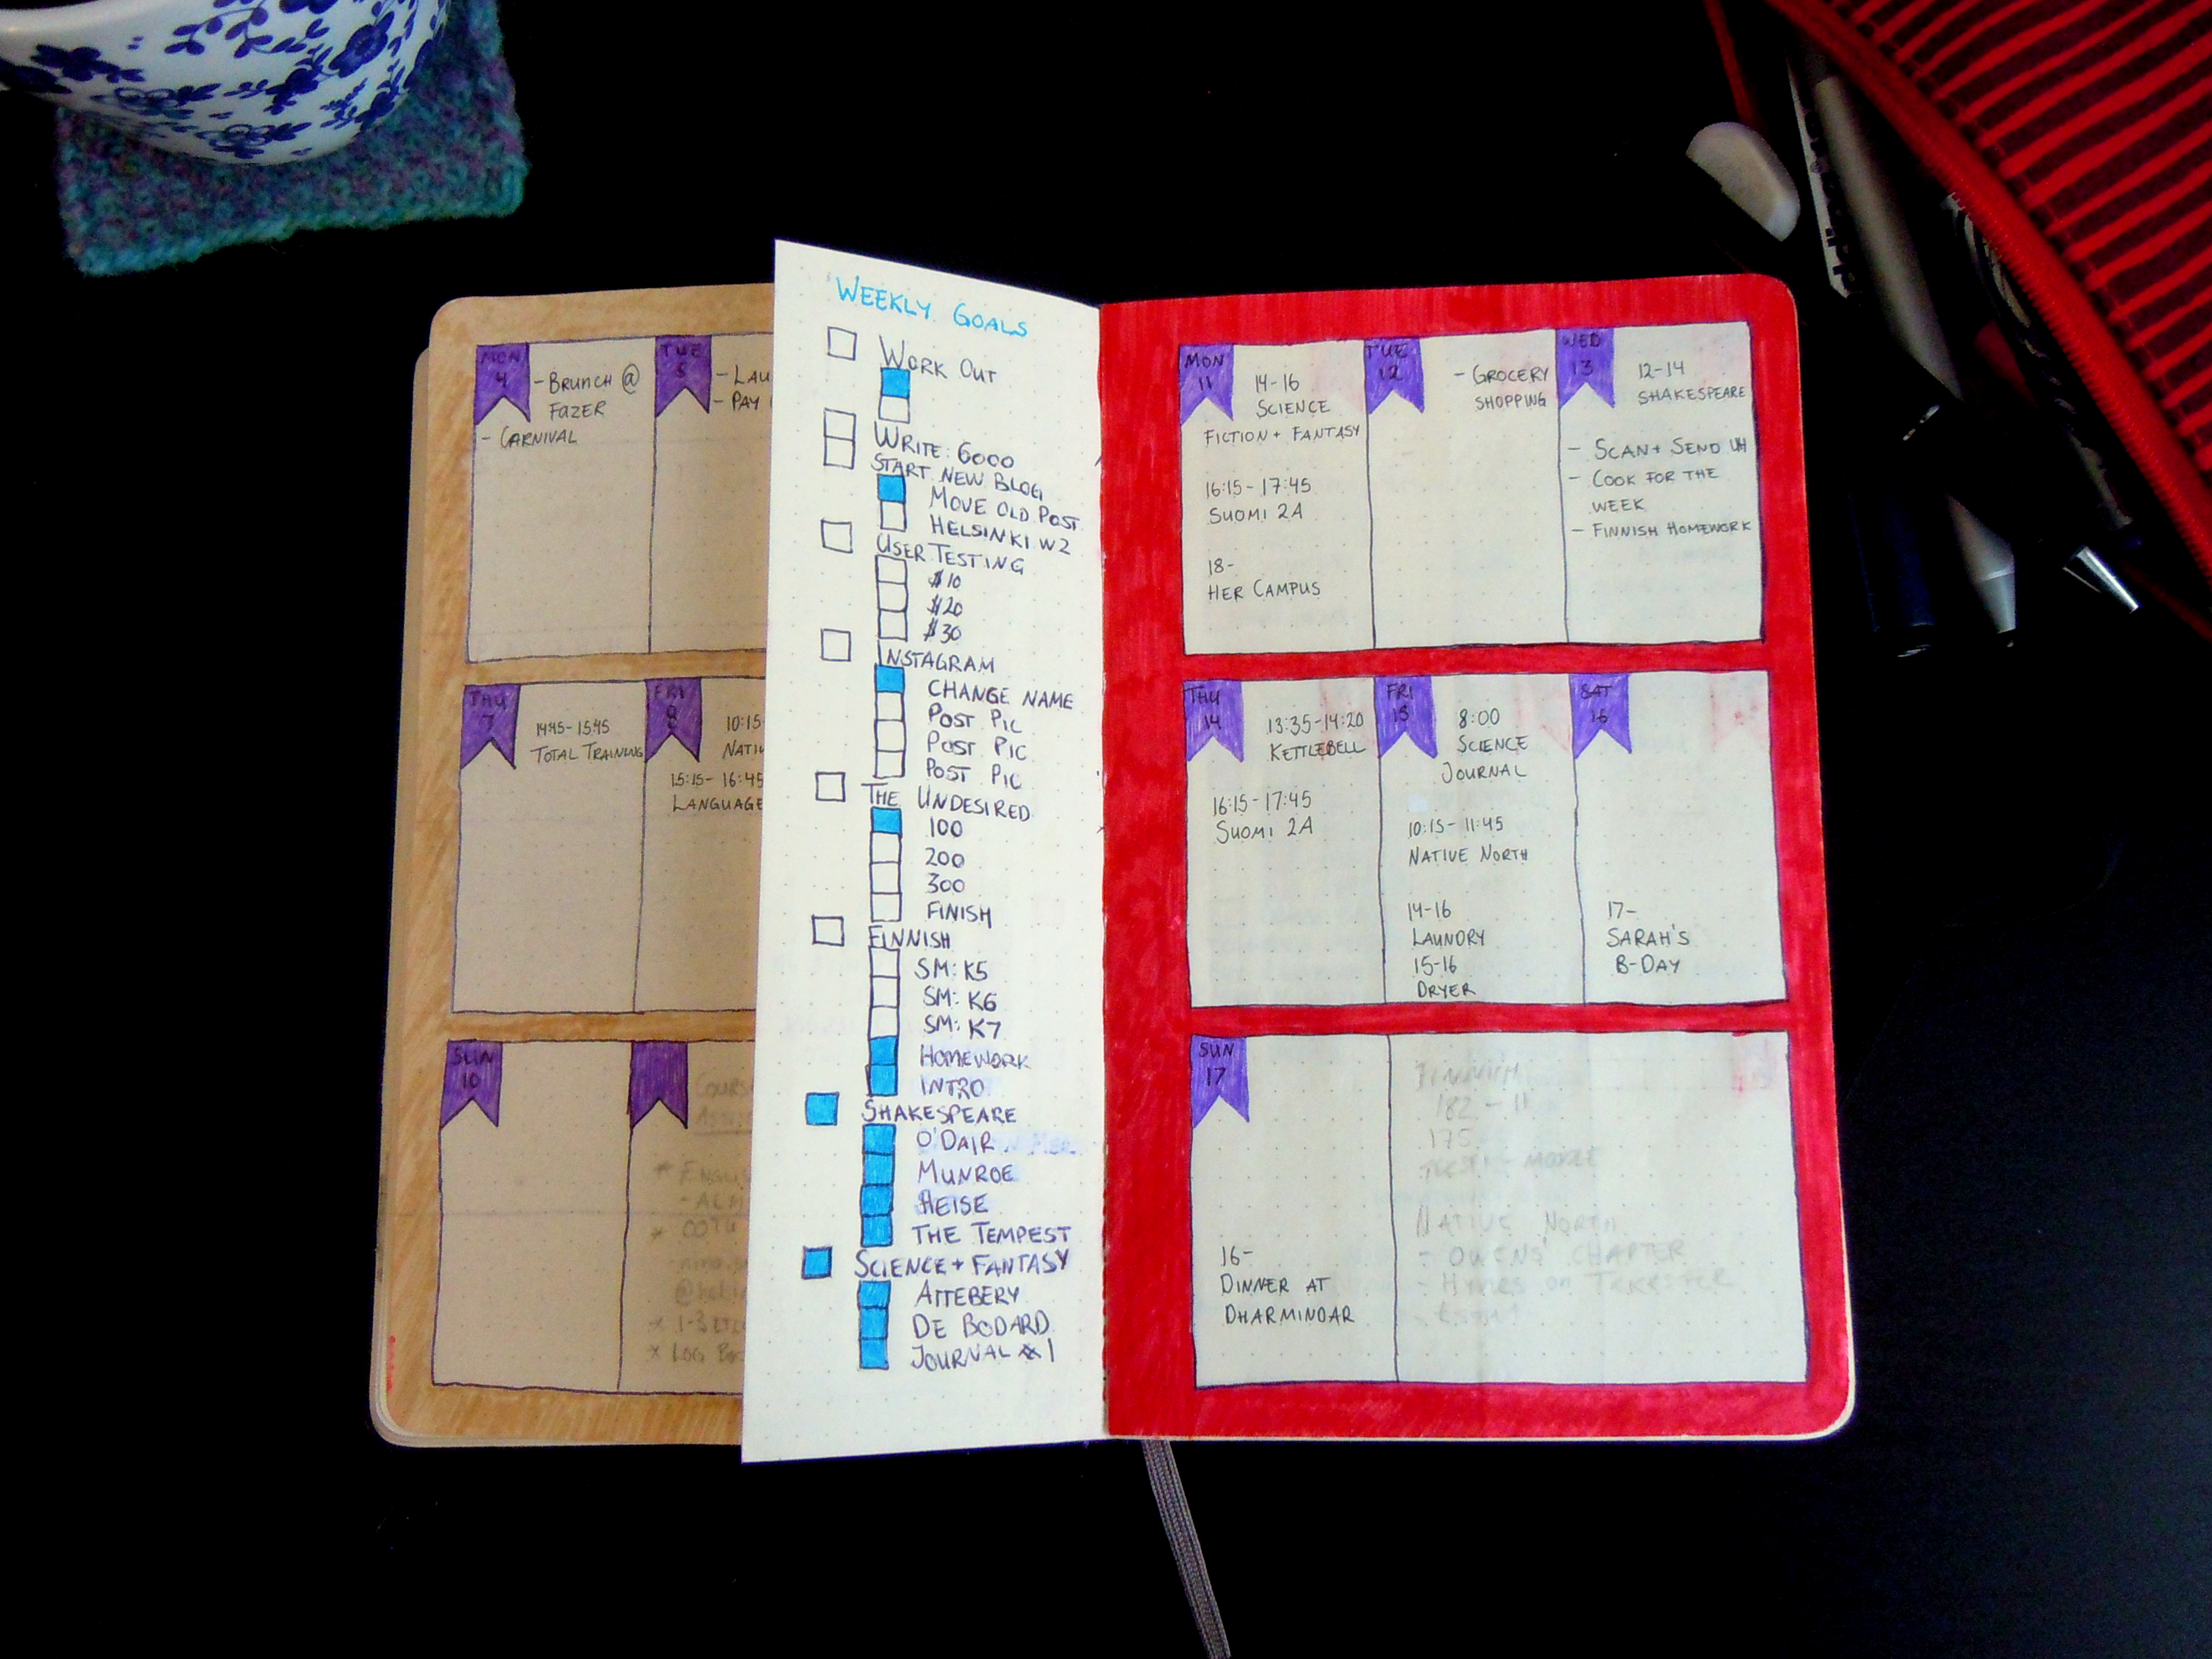 MON
4
- BRUNCH @
FAZER
- CARNIVAL
TUE
5
- LAU
- PAY
THU
7
14:45-15:45
TOTAL TRAINING
FRI
8
10:15
NATIV
15:15-16:45
LANGUAGE
SUN
10
WEEKLY GOALS
WORK OUT
WRITE: 6000
START NEW BLOG
MOVE OLD POST
HELSINKI W2
USER TESTING
$10
$20
$30
INSTAGRAM
CHANGE NAME
POST PIC
POST PIC
POST PIC
THE UNDESIRED
100
200
300
FINISH
FINNISH
SM: K5
SM: K6
SM: K7
HOMEWORK
INTRO
SHAKESPEARE
O'DAIR
MUNROE
HEISE
THE TEMPEST
SCIENCE + FANTASY
ATTEBERY
DE BODARD
JOURNAL #1
MON
11
14-16
SCIENCE
FICTION + FANTASY
16:15-17:45
SUOMI 2A
18-
HER CAMPUS
TUE
12
- GROCERY
SHOPPING
WED
13
12-14
SHAKESPEARE
- SCAN + SEND UH
- COOK FOR THE
WEEK
- FINNISH HOMEWORK
THU
14
13:35-14:20
KETTLEBELL
16:15-17:45
SUOMI 2A
FRI
15
8:00
SCIENCE
JOURNAL
10:15-11:45
NATIVE NORTH
14-16
LAUNDRY
15-16
DRYER
SAT
16
17-
SARAH'S
B-DAY
SUN
17
16-
DINNER AT
DHARMINDAR
FINNISH
182 - 11
175
NATIVE NORTH
- OWENS' CHAPTER